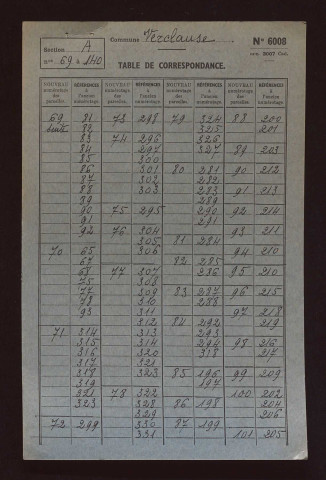 Commune Verclause
N° 6008
Section A
nos 69 à 140
TABLE DE CORRESPONDANCE.
NOUVEAU numérotage des parcelles. RÉFÉRENCES à l'ancien numérotage NOUVEAU numérotage des parcelles. RÉFÉRENCES à l'ancien numérotage NOUVEAU numérotage des parcelles. RÉFÉRENCES à l'ancien numérotage NOUVEAU numérotage des parcelles. RÉFÉRENCES à l'ancien numérotage
69 81 73 298 79 324 88 200
suite 82 325 201
83 74 296 326
84 297 327 89 203
85 300
86 301 80 281 90 212
87 302 282
88 303 283 91 213
89 289
90 75 295 290 92 214
91 291
92 76 304 93 211
305 81 284
70 65 306 94 210
67 82 285
68 77 307 286 95 210
75 308
77 309 83 287 96 215
78 310 288
93 311 97 218
312 84 292 219
71 314 313 293
315 314 294 98 216
316 320 318 217
317 321
318 323 85 196 99 209
319 197
321 78 322 100 202
323 328 86 198 204
329 206
72 299 330 87 199
331 101 205